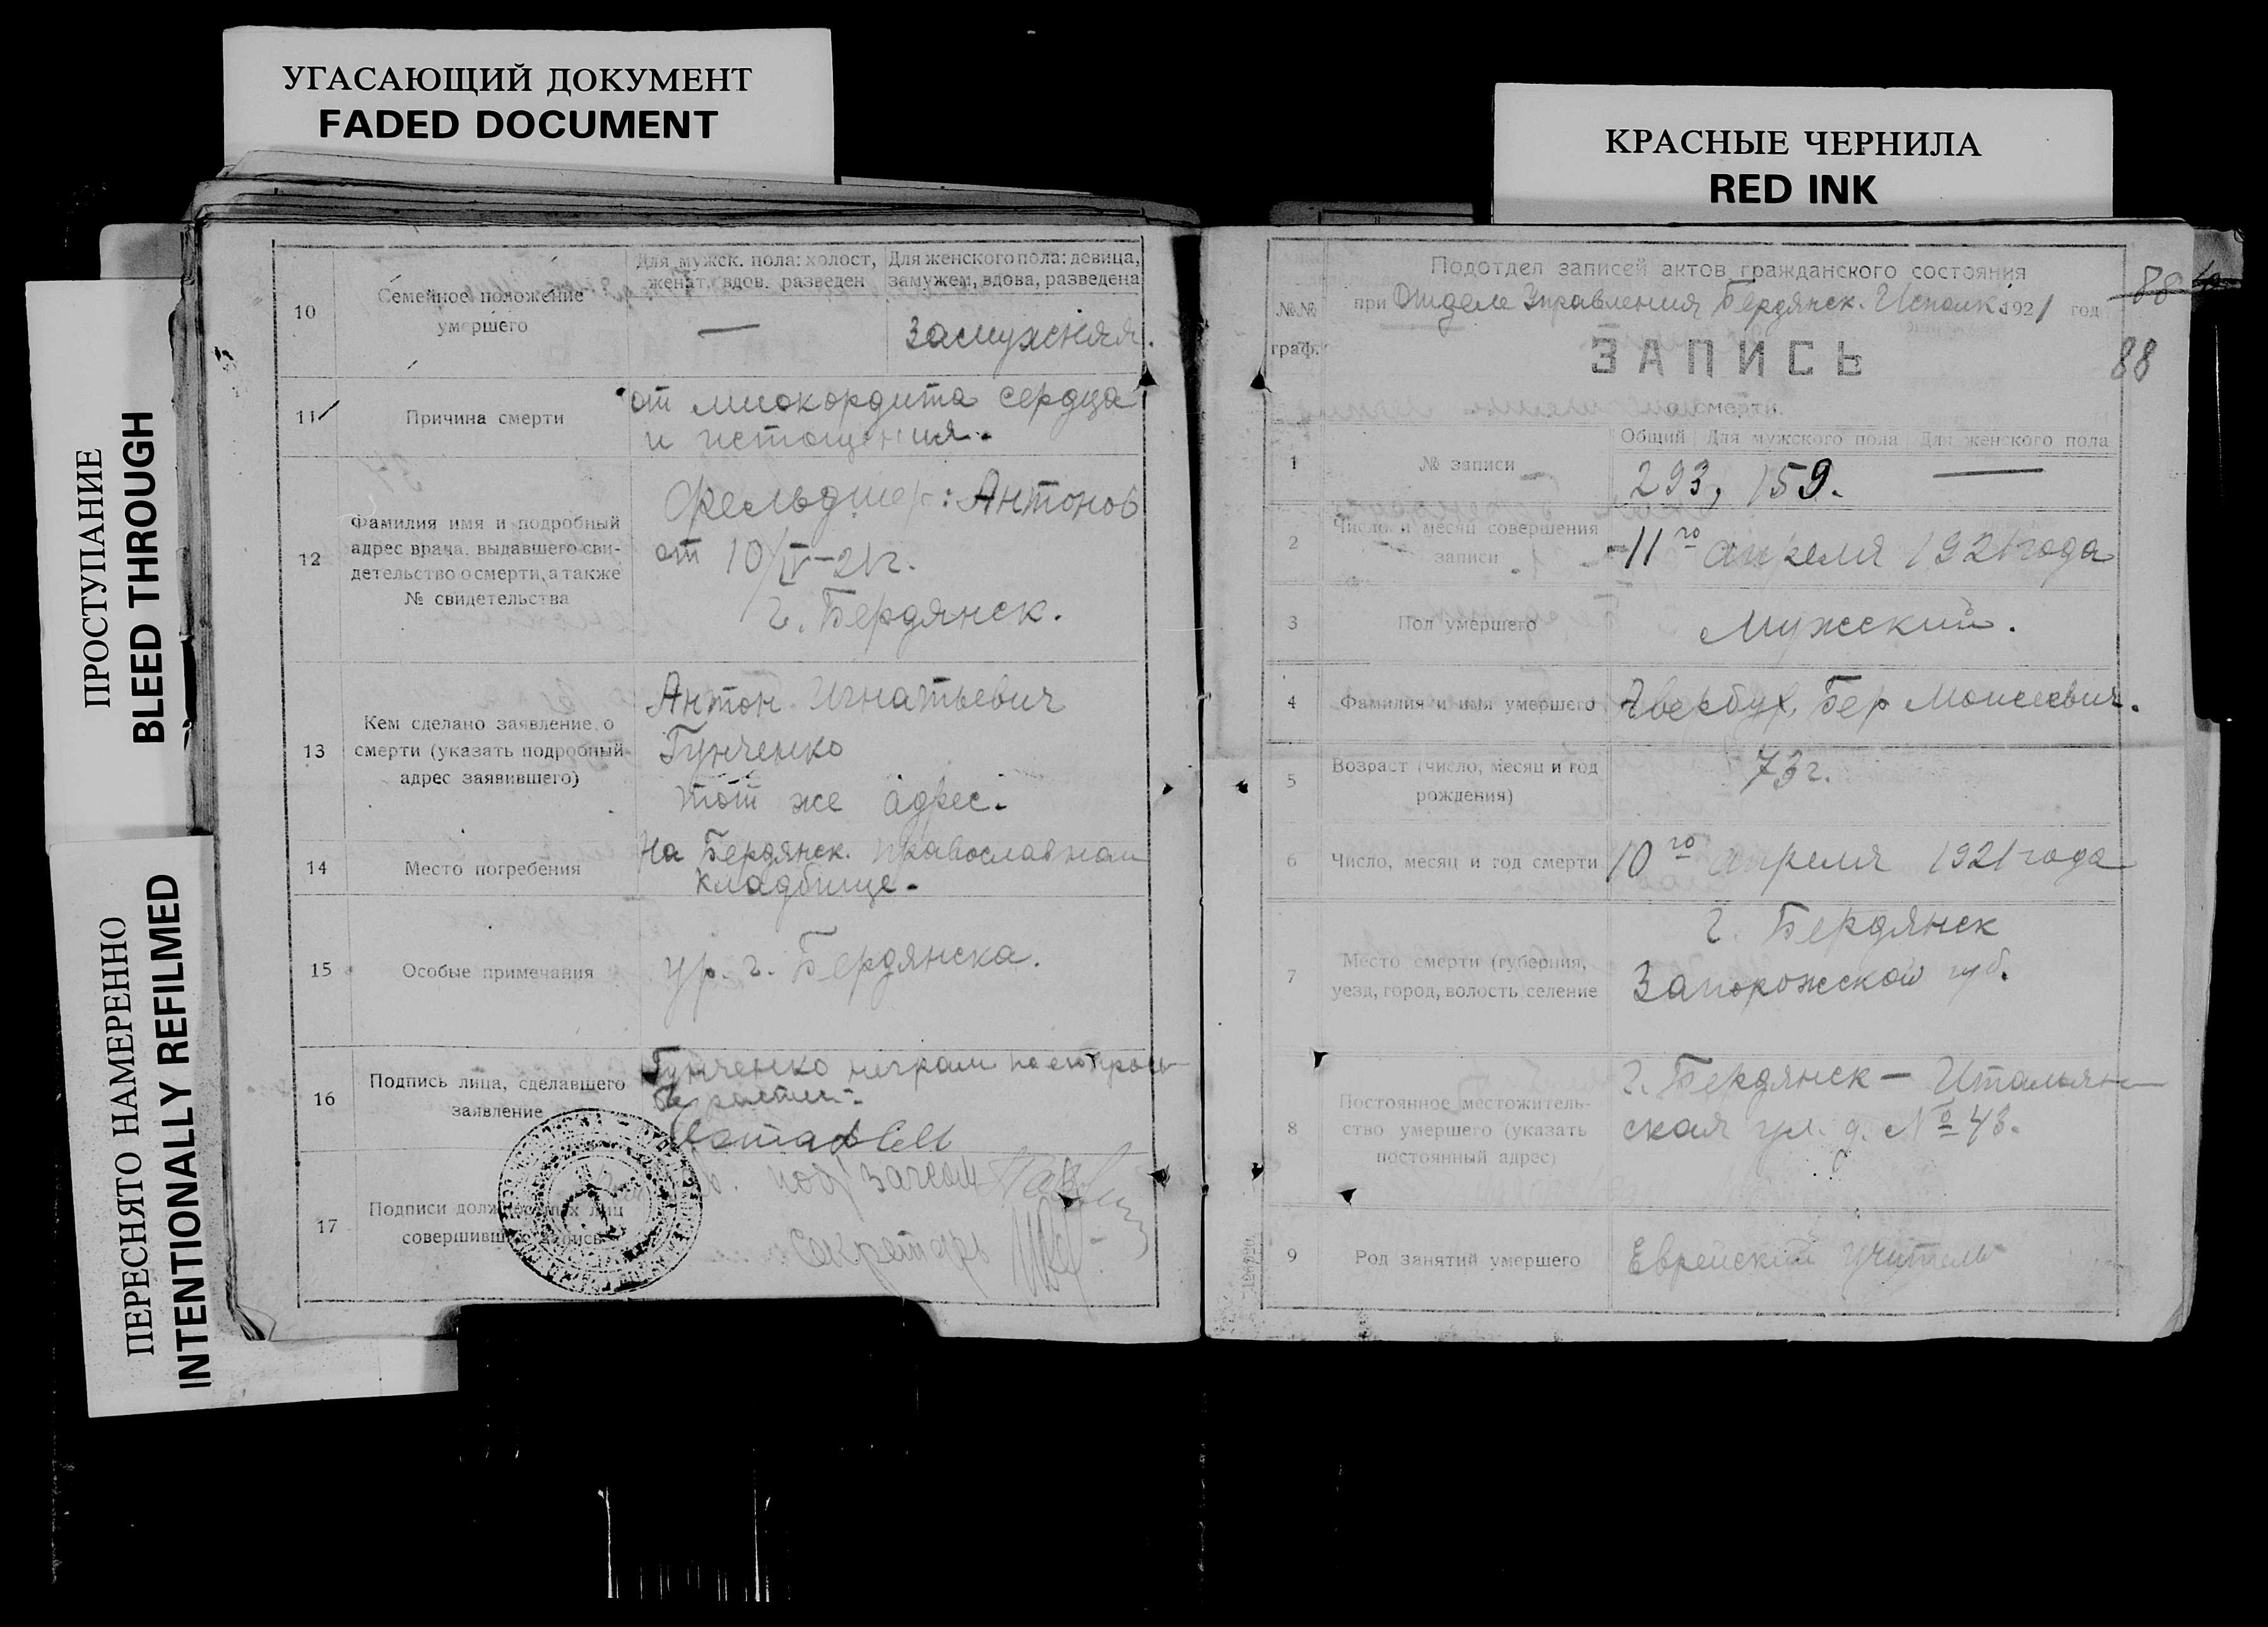 УГАСАЮЩИЙ ДОКУМЕНТ
FADED DOCUMENT
КРАСНЫЕ ЧЕРНИЛА
RED INK
ПРОСТУПАНИЕ
BLEED THROUGH
ПЕРЕСНЯТО НАМЕРЕННО
INTENTIONALLY REFILMED
10
Семейное положение
умершего
Для мужск. пола: холост,
женат, вдов, разведен
Для женского пола: девица,
замужем, вдова, разведена
—
Замужняя.
11
Причина смерти
от миокордита сердца
и истощения.
12
Фамилия имя и подробный
адрес врача, выдавшего сви-
детельство о смерти, а также
№ свидетельства
Фельдшер: Антонов
от 10/IV-21г.
г. Бердянск.
13
Кем сделано заявление о
смерти (указать подробный
адрес заявившего)
Антон Игнатьевич
Гунченко
тот же адрес.
14
Место погребения
На Бердянск. православном
кладбище.
15
Особые примечания
ур. г. Бердянска.
16
Подпись лица, сделавшего
заявление
Гунченко неграм
17
Подписи должностных лиц
совершивших запись
Секретарь
№№
граф.
Подотдел записей актов гражданского состояния
при Отделе Управления Бердянск. Исполк. 1921 год
88
88
ЗАПИСЬ
о смерти.
1
№ записи
Общий
Для мужского пола
Для женского пола
293, 159. —
2
Число и месяц совершения
записи
11го апреля 1921 года
3
Пол умершего
Мужской.
4
Фамилия и имя умершего
Авербух, Бер Моисеевич.
5
Возраст (число, месяц и год
рождения)
73 г.
6
Число, месяц и год смерти
10го апреля 1921 года
7
Место смерти (губерния,
уезд, город, волость, селение
г. Бердянск
Запорожской губ.
8
Постоянное местожитель-
ство умершего (указать
постоянный адрес)
г. Бердянск — Итальян-
ская ул. д. № 43.
9
Род занятий умершего
Еврейский учитель